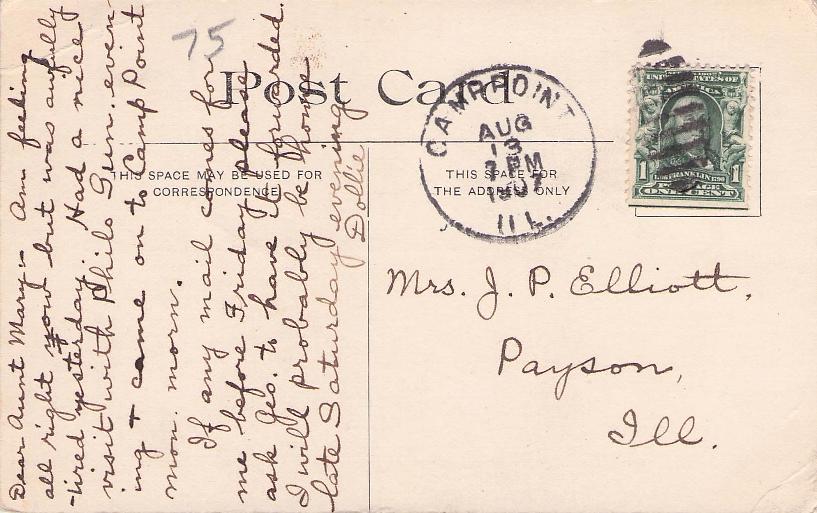 75
Post Card
THIS SPACE MAY BE USED FOR
CORRESPONDENCE
THIS SPACE FOR
THE ADDRESS ONLY
CAMP POINT
AUG
13
PM
1907
ILL.
UNITED STATES OF
AMERICA
1 1
FRANKLIN
POSTAGE
ONE CENT
Mrs. J. P. Elliott,
Payson,
Ill.
Dear Aunt Mary:- Am feeling
all right now but was awfully
tired yesterday. Had a nice
visit with Philo Sun. even-
ing + came on to Camp Point
mon. morn.
If any mail comes for
me before Friday please
ask Geo. to have it forwarded.
I will probably be home
late Saturday evening
Dollie